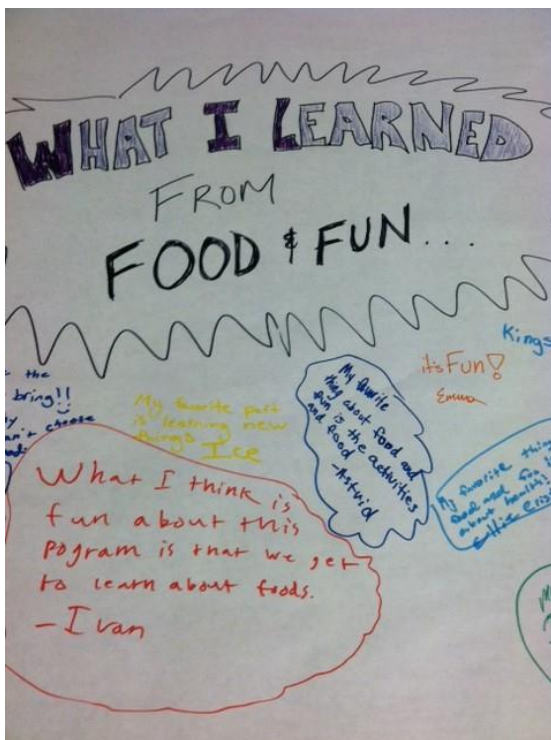 WHAT I LEARNED
FROM
FOOD & FUN...
Kings
it's Fun!
Emma
the
bring!!
can't choose
My favorite part
is learning new
things Ice
My favorite
thing about food and
fun is the activities
and food
-Astrid
My favorite thin
food and fun
about health!
What I think is
fun about this
Pogram is that we get
to learn about foods.
-Ivan